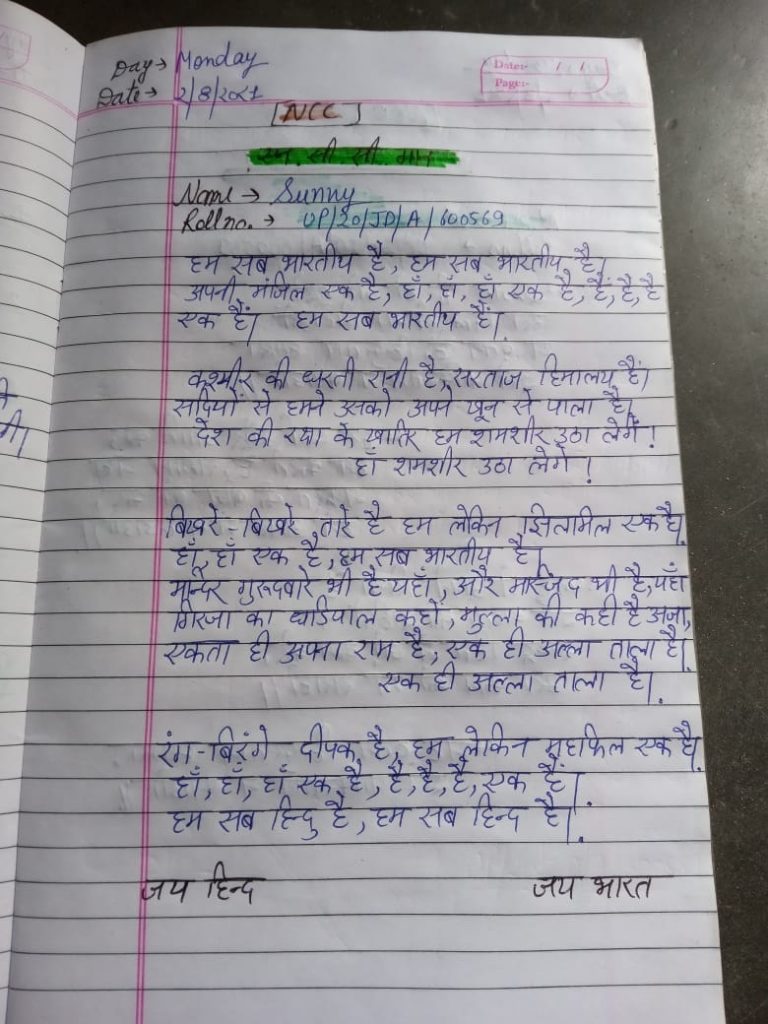 Day → Monday
Date:- / /
Page:-
Date → 2/8/2021
NCC
एन. सी सी गान
Name → Sunny
Roll no. → UP/20/JD/A/600569
हम सब भारतीय है, हम सब भारतीय है।
अपनी मंजिल एक है, हाँ, हाँ, हाँ एक है, है, है, है
एक हैं। हम सब भारतीय हैं।
कश्मीर की धरती रानी है, सरताज हिमालय हैं।
सदियों से हमने उसको अपने खून से पाला है।
देश की रक्षा के खातिर हम शमशीर उठा लेगें!
हाँ शमशीर उठा लेगें!
बिखरे-बिखरे तारे है हम लेकिन झिलमिल एक है।
हाँ, हाँ एक है, हम सब भारतीय है।
मन्दिर गुरूदबारे भी है यहाँ, और मस्जिद भी है, यहाँ
गिरजा का घाडियाल कहों, मुल्ला की कही है अजा,
एकता ही अपना राम है, एक ही अल्ला ताला है।
एक ही अल्ला ताला है।
रंग-बिरंगे दीपक है, हम लेकिन महफिल एक है।
हाँ, हाँ, हाँ एक है, है, है, है, एक हैं।
हम सब हिन्दु है, हम सब हिन्द है।
जय हिन्द जय भारत